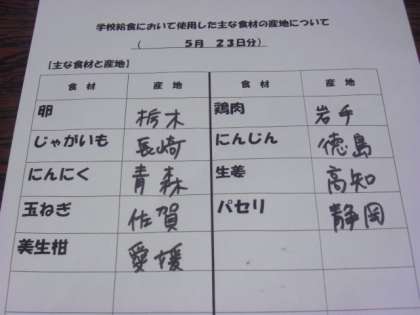 学校給食において使用した主な食材の産地について
（　　　５月　２３日分）
【主な食材と産地】
食　材　産　地　食　材　産　地
卵　栃木　鶏肉　岩手
じゃがいも　長崎　にんじん　徳島
にんにく　青森　生姜　高知
玉ねぎ　佐賀　パセリ　静岡
美生柑　愛媛